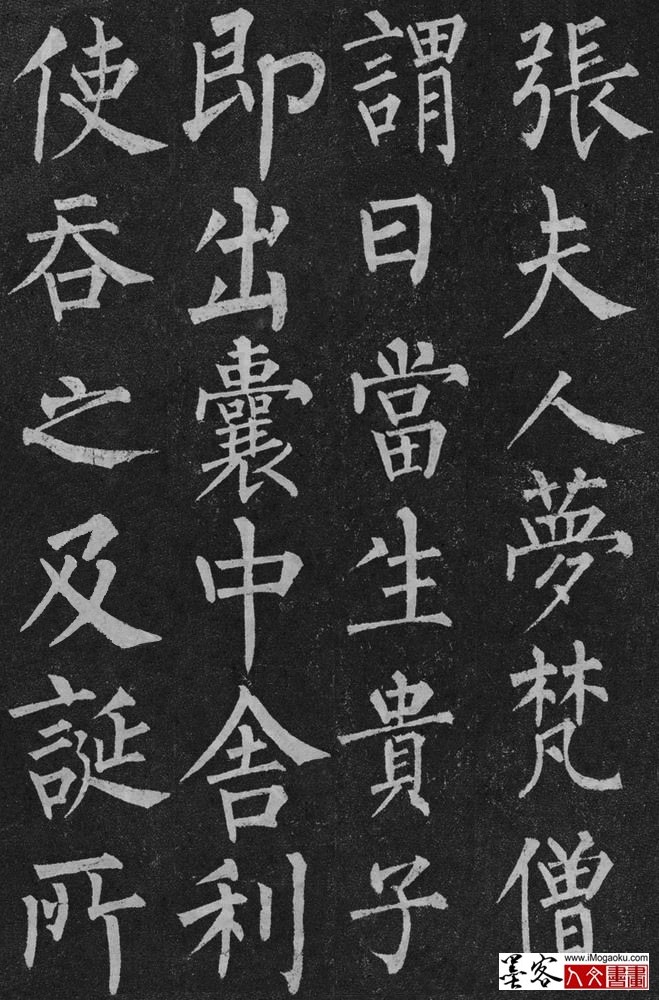 張夫人夢梵僧
謂曰當生貴子
即出囊中舍利
使吞之及誕所
墨客
www.iMogaoku.com
人文書畫